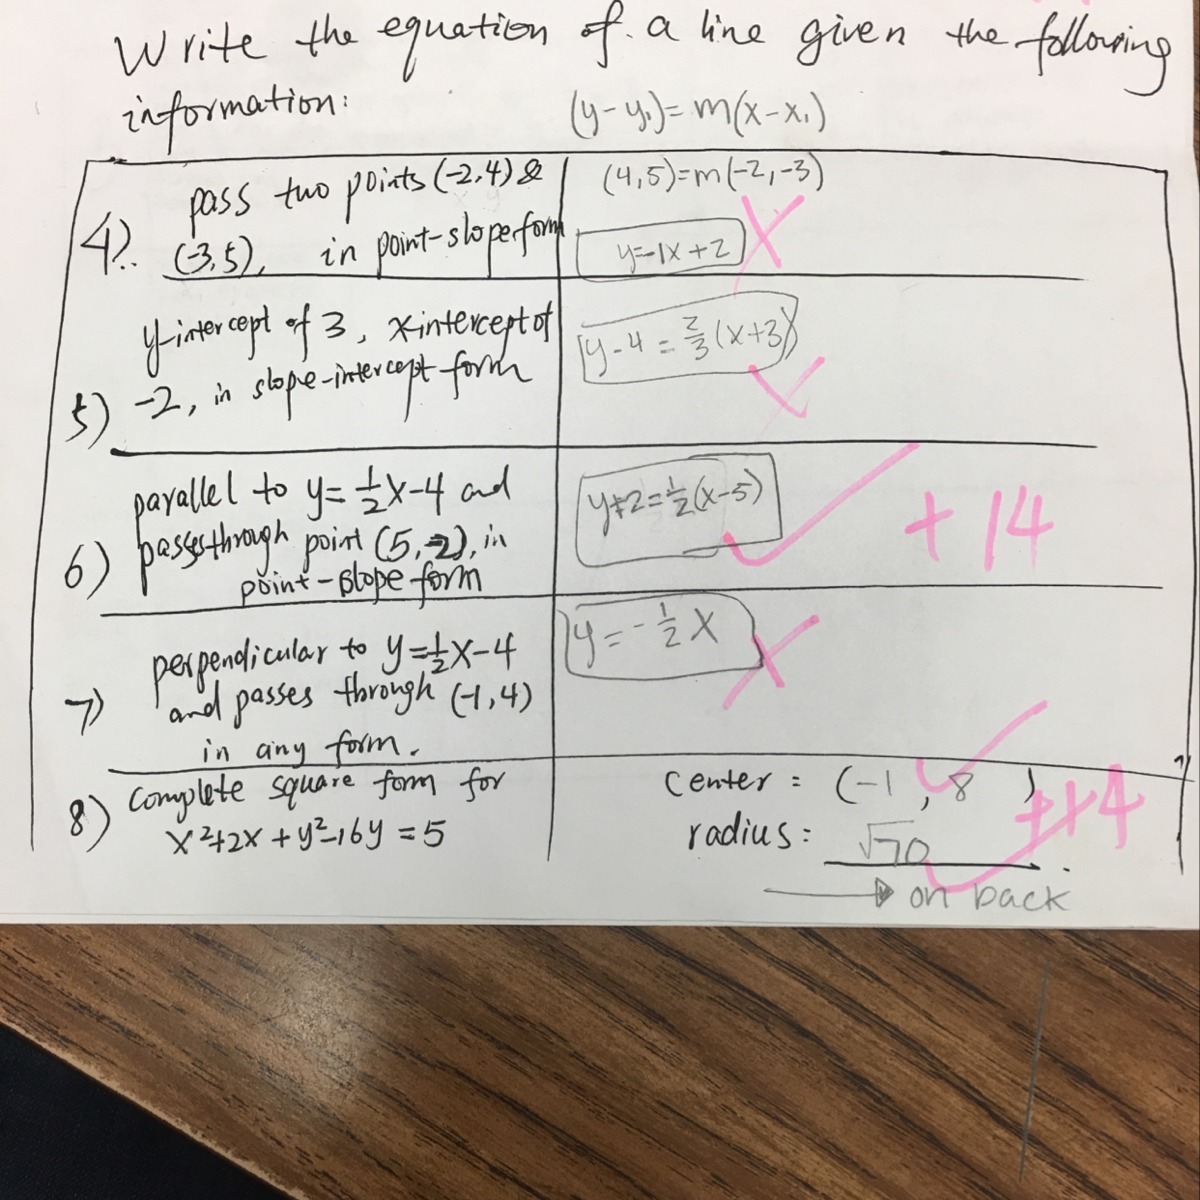 Write the equation of a line given the following
information:
(y-y₁)=m(x-x₁)
4). pass two points (-2,4) &
(-3,5), in point-slope form
(4,5)=m(-2,-3)
y=-1x+2
5) y-intercept of 3, x-intercept of
-2, in slope-intercept form
y-4=2/3(x+3)
6) parallel to y=1/2x-4 and
passes through point (5,-2), in
point-slope form
y+2=1/2(x-5)
+14
7) perpendicular to y=1/2x-4
and passes through (-1,4)
in any form.
y=-1/2x
8) Complete square form for
x²+2x+y²-16y=5
center: (-1, 8 )
radius: √70.
++4
on back